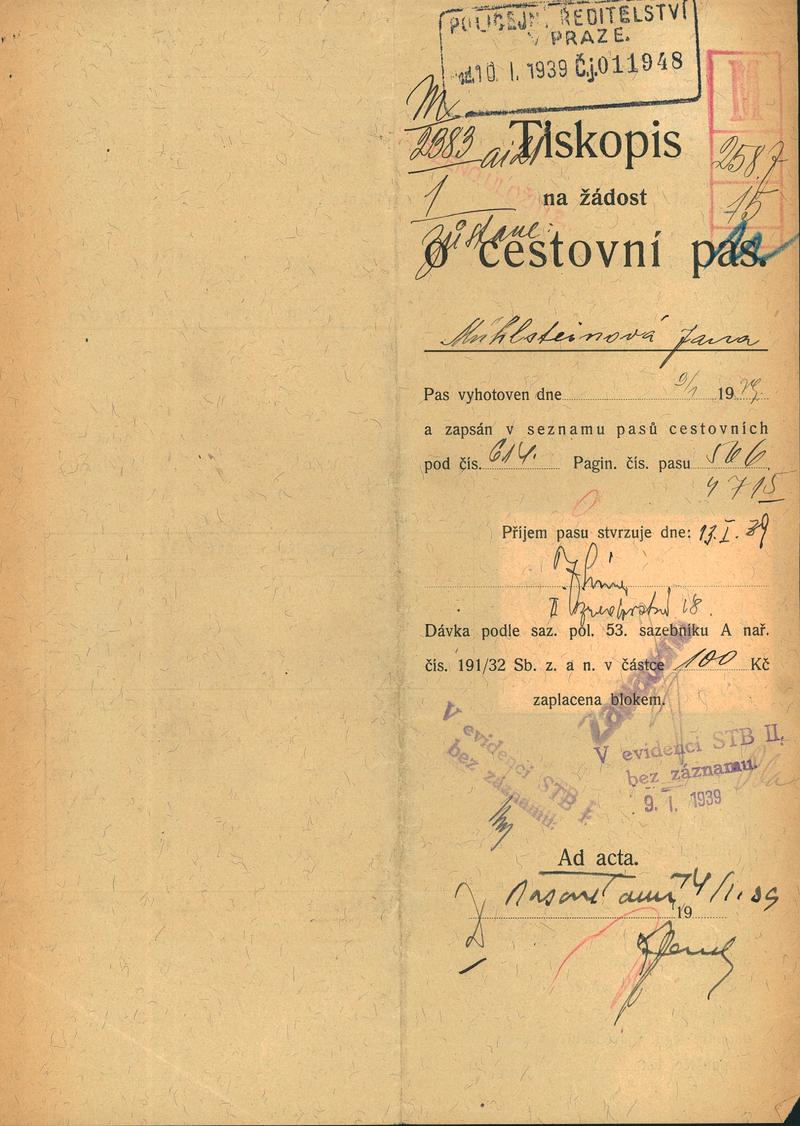 POLICEJNÍ ŘEDITELSTVÍ
V PRAZE.
10. I. 1939 Č.j. 011948
M
2383
M
Tiskopis
258.7
1
na žádost
15
zůstane:
o cestovní pas.
Mühlsteinová Jana
Pas vyhotoven dne 9/1 1939.
a zapsán v seznamu pasů cestovních
pod čís. 614. Pagin. čís. pasu 566
4715
Příjem pasu stvrzuje dne: 13.I.39
II 18.
Dávka podle saz. pol. 53. sazebníku A nař.
čís. 191/32 Sb. z. a n. v částce 100 Kč
zaplacena blokem.
Zaplaceno
V evidenci STB I.
bez záznamu.
V evidenci STB II.
bez záznamu.
9. I. 1939
Ad acta.
14/1.39
19